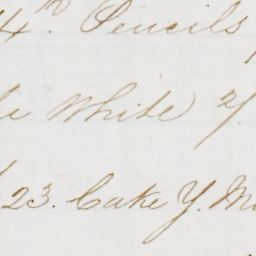 4 n. Pencils
White 2/
23. Cake Y. M